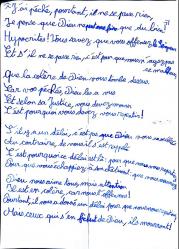 "J'ai péché, pourtant, il ne se passe rien,
Je pense que Dieu ne peut me faire que du bien!"
Hypocrites! Vous savez que vous offensez le Seigneur
Et s'il ne se passe rien, c'est pour que
Que la colère de Dieu vous tombe dessus
Car vos péchés, Dieu les a vus
Et selon sa Justice, vous devez mourir
C'est pourquoi vous devez vous repentir!
S'il y a un délai, c'est parce que Dieu nous
Au contraire, de nous il s'est rappelé
C'est pourquoi ce délai est là: pour que nous nous
Pour que nous échappions à
Dieu nous aime tous, mais attention
Il est en colère, car nous l'offensons!
Pourtant, il nous a donné un délai pour que nous nous
Mais ceux qui s'en fichent de Dieu, ils mourront!